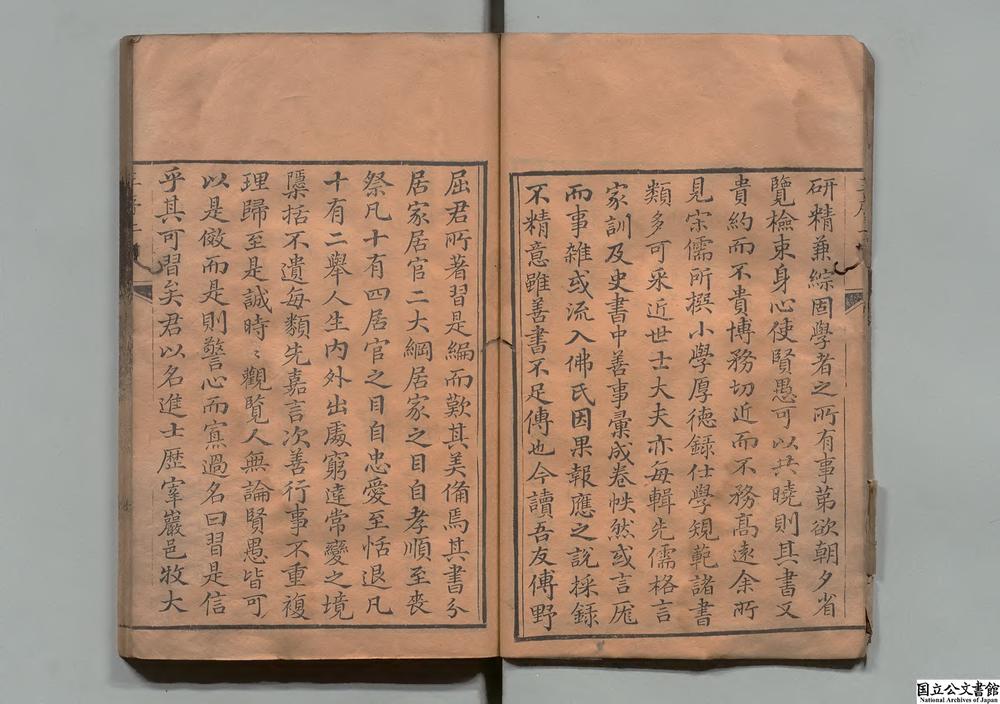 研精兼綜固學者之所有事第欲朝夕省
覽檢束身心使賢愚可以共曉則其書又
貴約而不貴博務切近而不務高遠余所
見宋儒所撰小學厚德録仕學規範諸書
類多可采近世士大夫亦每輯先儒格言
家訓及史書中善事彙成卷帙然或言厖
而事雜或流入佛氏因果報應之説採録
不精意雖善書不足傳也今讀吾友傅野
屈君所著習是編而歎其美備焉其書分
居家居官二大綱居家之目自孝順至喪
祭凡十有四居官之目自忠愛至恬退凡
十有二舉人生内外出處窮達常變之境
櫽括不遺每類先嘉言次善行事不重複
理歸至是誠時〻觀覽人無論賢愚皆可
以是儆而是則警心而寡過名曰習是信
乎其可習矣君以名進士歴宰巖邑牧大
国立公文書館
National Archives of Japan